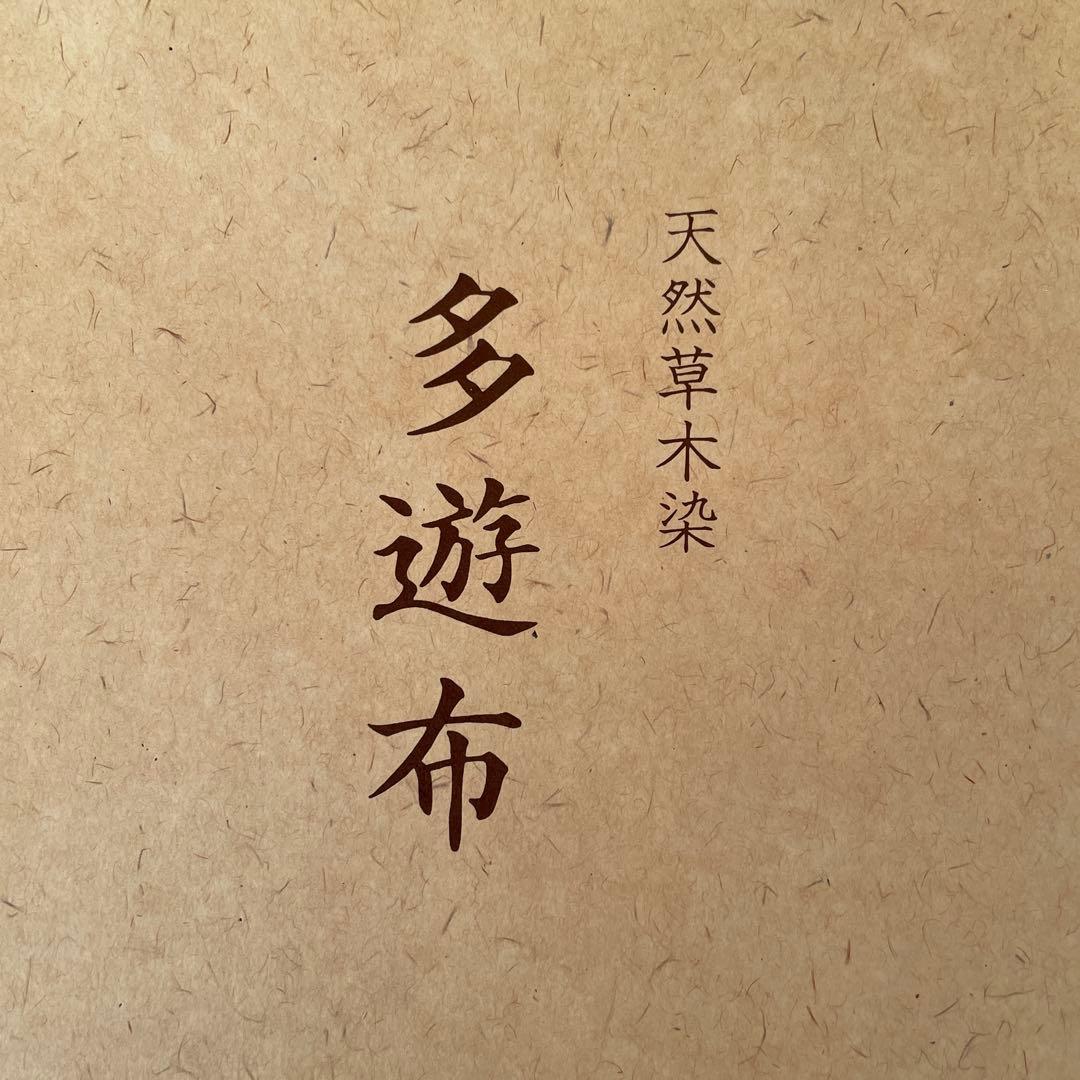 天然草木染
多遊布